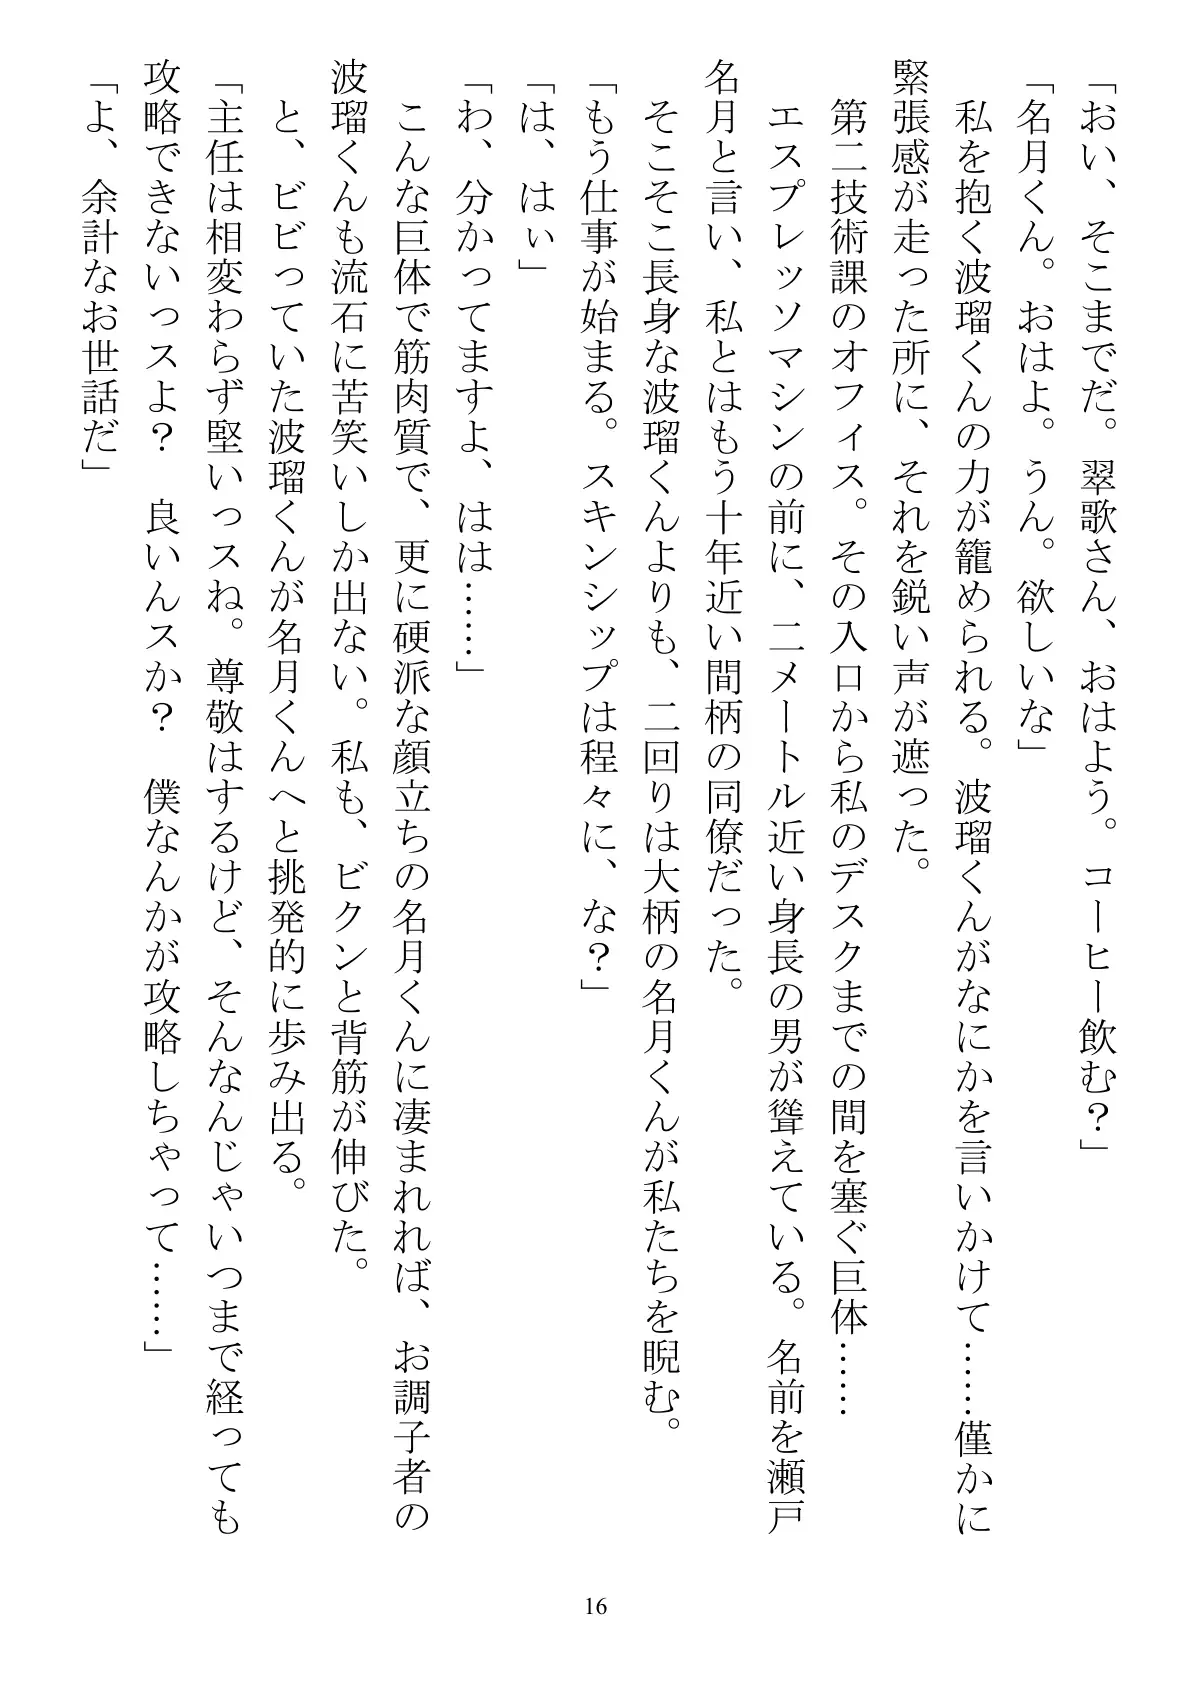 「おい、そこまでだ。翠歌さん、おはよう。コーヒー飲む？」
「名月くん。おはよ。うん。欲しいな」
　私を抱く波瑠くんの力が籠められる。波瑠くんがなにかを言いかけて……僅かに
緊張感が走った所に、それを鋭い声が遮った。
　第二技術課のオフィス。その入口から私のデスクまでの間を塞ぐ巨体……
　エスプレッソマシンの前に、二メートル近い身長の男が聳えている。名前を瀬戸
名月と言い、私とはもう十年近い間柄の同僚だった。
　そこそこ長身な波瑠くんよりも、二回りは大柄の名月くんが私たちを睨む。
「もう仕事が始まる。スキンシップは程々に、な？」
「は、はぃ」
「わ、分かってますよ、はは……」
　こんな巨体で筋肉質で、更に硬派な顔立ちの名月くんに凄まれれば、お調子者の
波瑠くんも流石に苦笑いしか出ない。私も、ビクンと背筋が伸びた。
　と、ビビっていた波瑠くんが名月くんへと挑発的に歩み出る。
「主任は相変わらず堅いっスね。尊敬はするけど、そんなんじゃいつまで経っても
攻略できないっスよ？　良いんスか？　僕なんかが攻略しちゃって……」
「よ、余計なお世話だ」
16